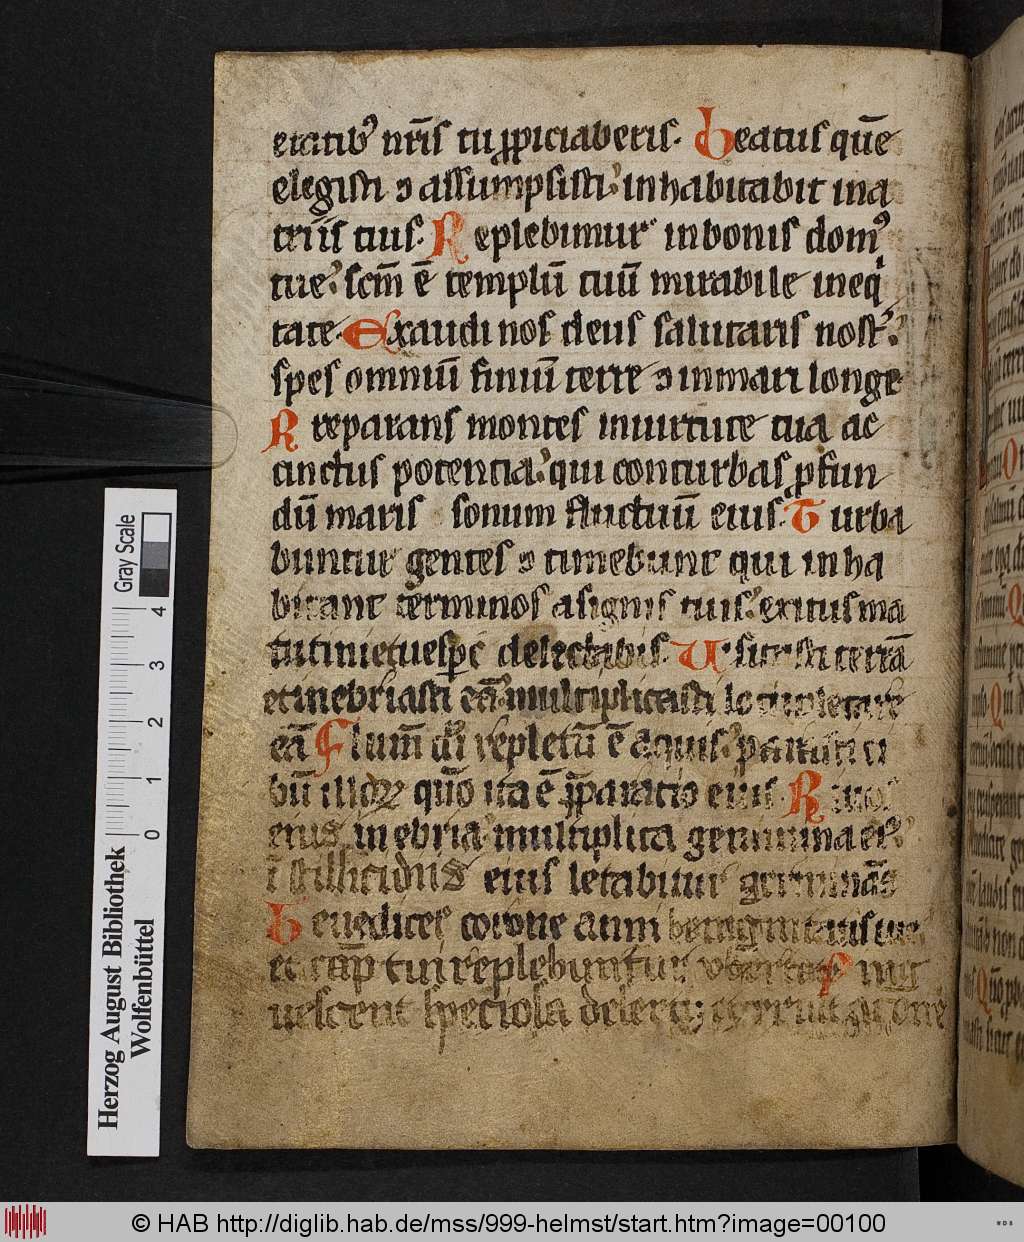 etatib⁹ nr̄is tu ꝓpiciaberis. Beatus quē
elegisti ⁊ assumpsisti inhabitabit in a
triis tuis. Replebimur in bonis dom⁹
tue scm̄ ē templū tuū mirabile in eq
tate. Exaudi nos deus salutaris nost̄
spes omniū finiū terre ⁊ in mari longe
R reparans montes in uirtute tua ac
cinctus potentia qui conturbas ꝓfun
dū maris sonum fluctuū eius. Turba
buntur gentes ⁊ timebunt qui inha
bitant terminos a signis tuis exitus ma
tutini et uesꝑe delectabis. Uisitasti terrā
et inebriasti eā multiplicasti locupletare
eā Flum̄ di repletū ē aquis parasti ci
bū illoꝝ quō ita ē p̄paratio eius Riuos
eius inebria multiplica genimina ei⁹
ī stillicidiis eius letabitur germinās
Benedices corone anni benignitatis tue
et cāp tui replebuntur ubertate Ping
uescent speciosa deserti
Herzog August Bibliothek
Wolfenbüttel
Gray Scale
0 1 2 3 4
© HAB http://diglib.hab.de/mss/999-helmst/start.htm?image=00100